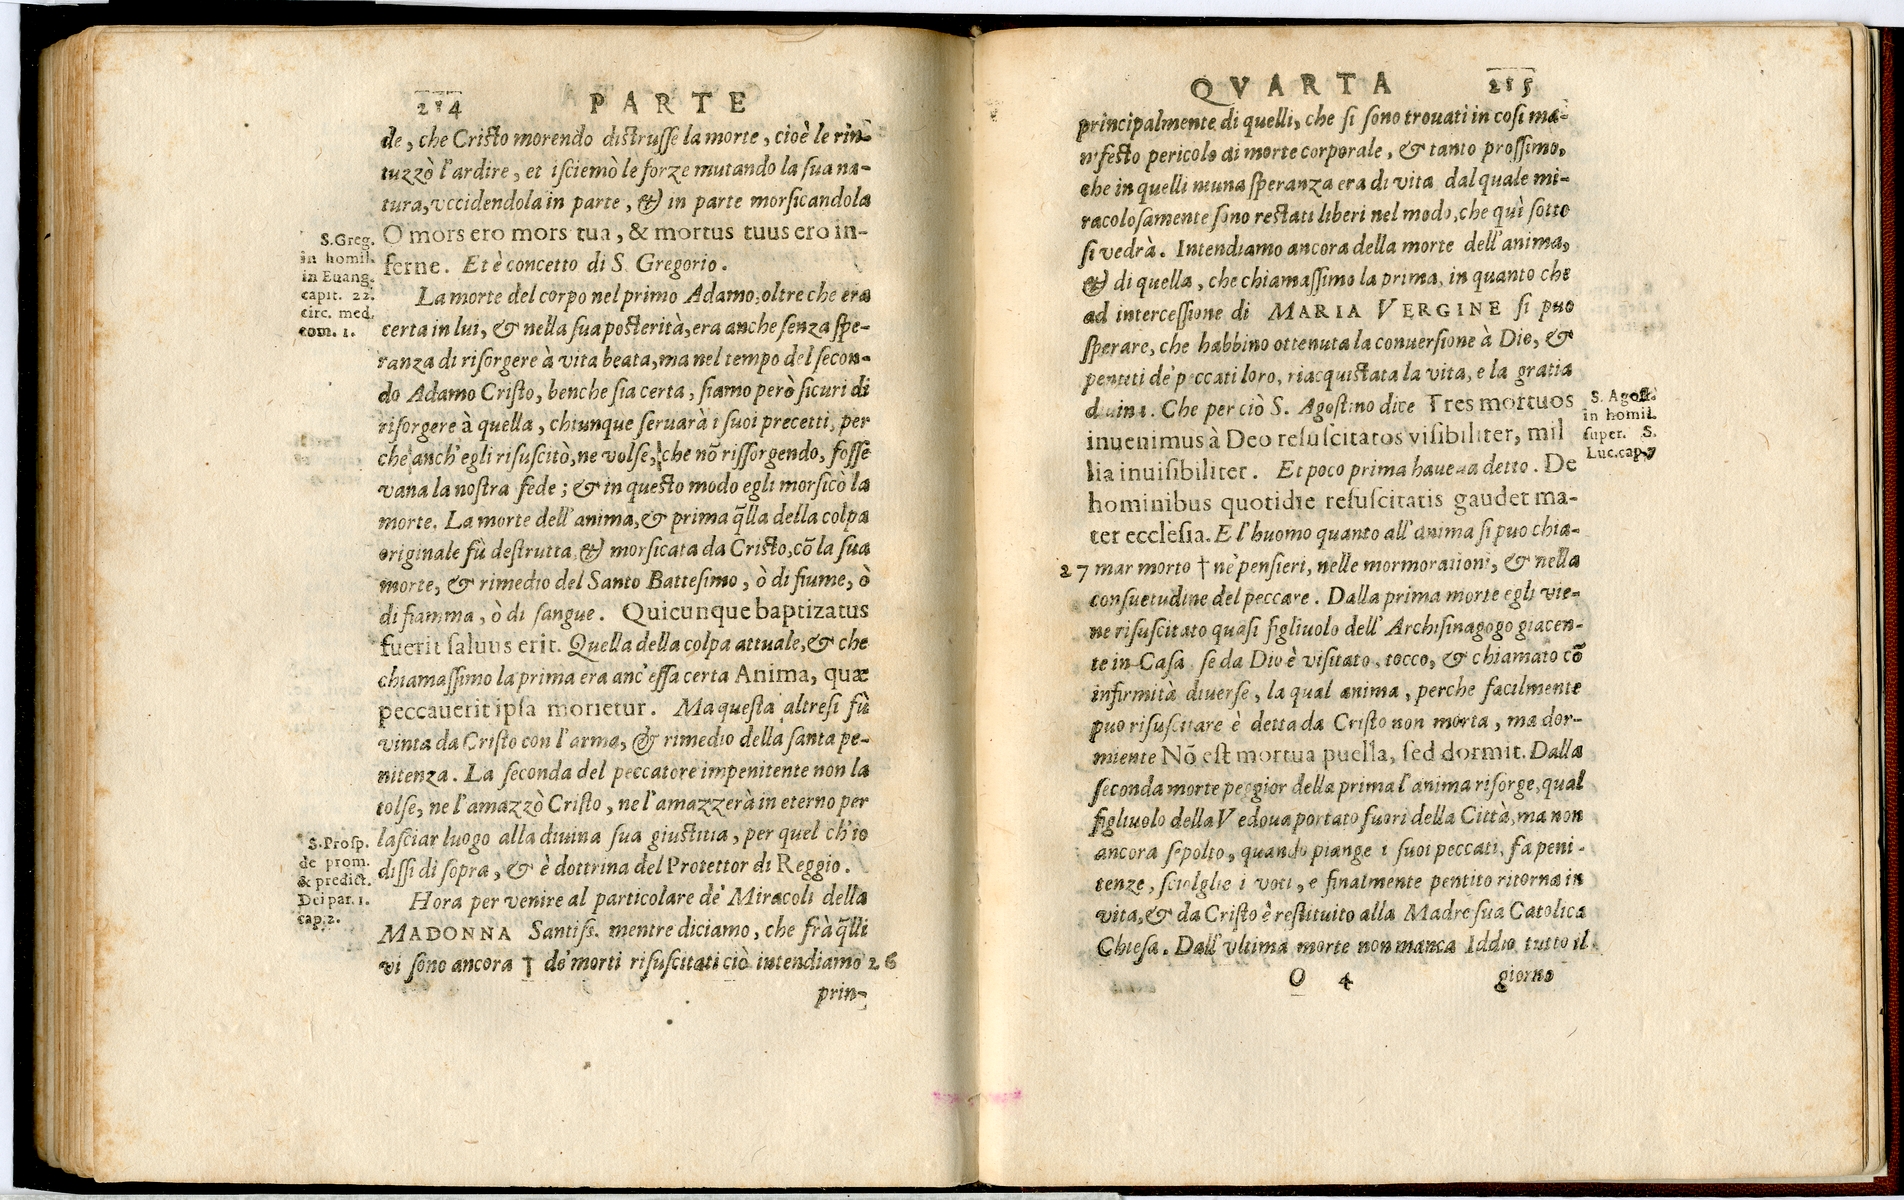 214 PARTE
de, che Cristo morendo distrusse la morte, cioè le rin-
tuzzò l'ardire, et isciemò le forze mutando la sua na-
tura, vccidendola in parte, & in parte morsicandola
O mors ero mors tua, & mortus tuus ero in-
ferne. Et è concetto di S. Gregorio.
S. Greg.
in homil.
in Euang.
capit. 22.
circ. med.
com. 1.
La morte del corpo nel primo Adamo, oltre che era
certa in lui, & nella sua posterità, era anche senza spe-
ranza di risorgere à vita beata, ma nel tempo del secon-
do Adamo Cristo, benche sia certa, siamo però sicuri di
risorgere à quella, chiunque seruarà i suoi precetti, per
che anch' egli risuscitò, ne volse, che nō rissorgendo, fosse
vana la nostra fede; & in questo modo egli morsicò la
morte. La morte dell' anima, & prima q̃lla della colpa
originale fù destrutta, & morsicata da Cristo, cō la sua
morte, & rimedio del Santo Battesimo, ò di fiume, ò
di fiamma, ò di sangue. Quicunque baptizatus
fuerit saluus erit. Quella della colpa attuale, & che
chiamassimo la prima era anc' essa certa Anima, quæ
peccauerit ipsa morietur. Ma questa altresi fù
vinta da Cristo con l'arma, & rimedio della santa pe-
nitenza. La seconda del peccatore impenitente non la
tolse, ne l'amazzò Cristo, ne l'amazzerà in eterno per
lasciar luogo alla diuina sua giustitia, per quel ch'io
dissi di sopra, & è dottrina del Protettor di Reggio.
S. Prosp.
de prom.
& predict.
Dei par. 1.
cap. 2.
Hora per venire al particolare de' Miracoli della
MADONNA Santiss. mentre diciamo, che frà q̃lli
vi sono ancora † de' morti risuscitati ciò intendiamo 26
prin-
QVARTA 215
principalmente di quelli, che si sono trouati in cosi ma-
nifesto pericolo di morte corporale, & tanto prossimo,
che in quelli niuna speranza era di vita dal quale mi-
racolosamente sono restati liberi nel modo, che quì sotto
si vedrà. Intendiamo ancora della morte dell' anima,
& di quella, che chiamassimo la prima, in quanto che
ad intercessione di MARIA VERGINE si può
sperare, che habbino ottenuta la conuersione à Dio, &
pentiti de' peccati loro, riacquistata la vita, e la gratia
diuina. Che per ciò S. Agostino dice Tres mortuos
inuenimus à Deo resuscitatos visibiliter, mil
lia inuisibiliter. Et poco prima haueua detto. De
hominibus quotidie resuscitatis gaudet ma-
ter ecclesia. E l'huomo quanto all' anima si puo chia-
S. Agost.
in homil.
super. S.
Luc. cap. 7
27 mar morto † ne' pensieri, nelle mormorationi, & nella
consuetudine del peccare. Dalla prima morte egli vie-
ne risuscitato quasi figliuolo dell' Archisinagogo giacen-
te in Casa se da Dio è visitato, tocco, & chiamato cō
infirmità diuerse, la qual anima, perche facilmente
puo risuscitare è detta da Cristo non morta, ma dor-
miente Nō est mortua puella, sed dormit. Dalla
seconda morte peggior della prima l'anima risorge, qual
figliuolo della Vedoua portato fuori della Città, ma non
ancora sepolto, quando piange i suoi peccati, fa peni-
tenze, sciolghe i voti, e finalmente pentito ritorna in
vita, & da Cristo è restituito alla Madre sua Catolica
Chiesa. Dall' vltima morte non manca Iddio tutto il
O 4 giorno